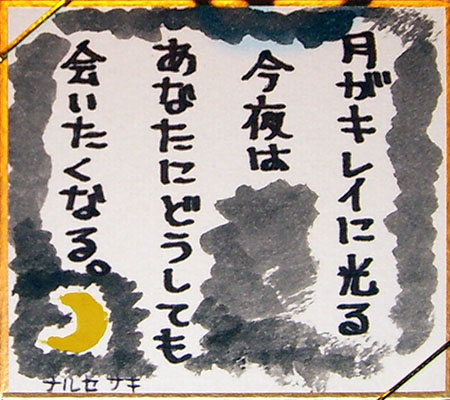 月がキレイに光る
今夜は
あなたにどうしても
会いたくなる。
ナルセ サキ